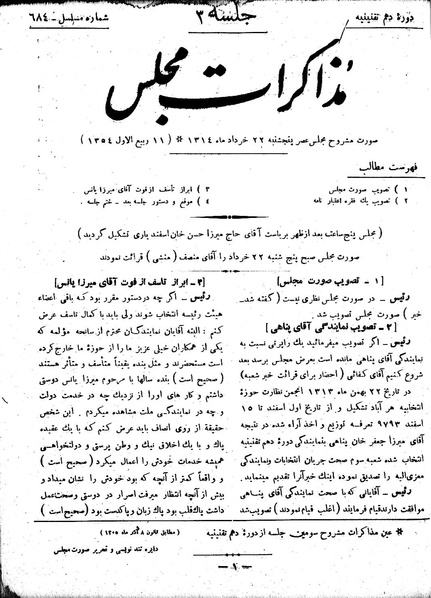 دورهٔ دهم تقنینیه
جلسه ۳
شماره مسلسل - ۶۸۴
مذاکرات مجلس
صورت مشروح مجلس عصر پنجشنبه ۲۲ خرداد ماه ۱۳۱۴ * ( ۱۱ ربیع الاول ۱۳۵۴ )
فهرست مطالب
۱ ) تصویب صورت مجلس
۲ ) تصویب یک فقره اعتبار نامه
۳ ) ابراز تأسف از فوت آقای میرزا یانس
۴ ) موقع و دستور جلسه بعد - ختم جلسه .
( مجلس پنج ساعت بعد از ظهر بریاست آقای حاج میرزا حسن خان اسفندیاری تشکیل گردید )
صورت مجلس صبح پنج شنبه ۲۲ خرداد را آقای منصف ( منشی ) قرائت نمودند
[ ۱ - تصویب صورت مجلس ]
رئیس - در صورت مجلس نظری نیست ( گفته شد
خیر ) صورت مجلس تصویب شد .
[ ۲ - تصویب نمایندگی آقای پناهی ]
رئیس - اگر تصویب میفرمائید یک راپرتی نسبت به
نمایندگی آقای پناهی مانده است بعرض مجلس برسد بعد
شروع کنیم آقای کفائی ( احضار برای قرائت خبر شعبه)
در تاریخ ۲۲ بهمن ماه ۱۳۱۳ انجمن نظارت حوزهٔ
انتخابیه هرآد تشکیل و از تاریخ اول اسفند تا ۱۵
اسفند ۹۷۹۳ تعرفه توزیع و اخذ آراء شده در نتیجه
آقای میرزا جعفر خان پناهی بنمایندگی دورهٔ دهم تقنینیه
انتخاب شده شعبه سوم صحت جریان انتخابات و نمایندگی
معزی‌الیه را تصدیق نموده اینک خبر آنرا تقدیم مینماید.
رئیس - آقایانی که با صحت نمایندگی آقای پناهی
موافقت دارند قیام فرمایند ( اغلب قیام نمودند ) تصویب شد
[ ۳ - ابراز تأسف از فوت آقای میرزا یانس ]
رئیس - اگر چه در دستور مقرر بود که باقی اعضاء
هیئت رئیسه انتخاب شوند ولی باید با کمال تأسف عرض
کنم : البته آقایان نمایندگان محترم از سانحه مؤلمه که
یکی از همکاران خیلی عزیز ما را از حوزهٔ ما خارج کرده
است مستحضرند و مثل بنده یقیناً متأسف و متأثر هستند
(صحیح است ) بنده سالها با مرحوم میرزا یانس دوستی
داشتم و کار های اورا از نزدیک چه در خدمت دولت
و چه در نمایندگی ملت مشاهده میکردم . این شخص
حقیقة از روی انصاف باید عرض کنم که با یک عقیده
پاک و با یک اخلاق نیک و وطن پرستی و دولتخواهی
همیشه خدمات خودش را اعمال میکرد ( صحیح است )
و واقعاً کمتر از آنچه که بود خودش را نشان میداد و
بیش از آنچه انتظار میرفت اصرار در دوستی و صحت عمل
داشت پاک قلب بود پاک زبان و پاکدست بود (صحیح است)
* عین مذاکرات مشروح سومین جلسه از دورهٔ دهم تقنینیه
( مطابق قانون ۸ آذر ماه ۱۳۰۵ )
دایره تند نویسی و تحریر صورت مجلس
- ۱ -